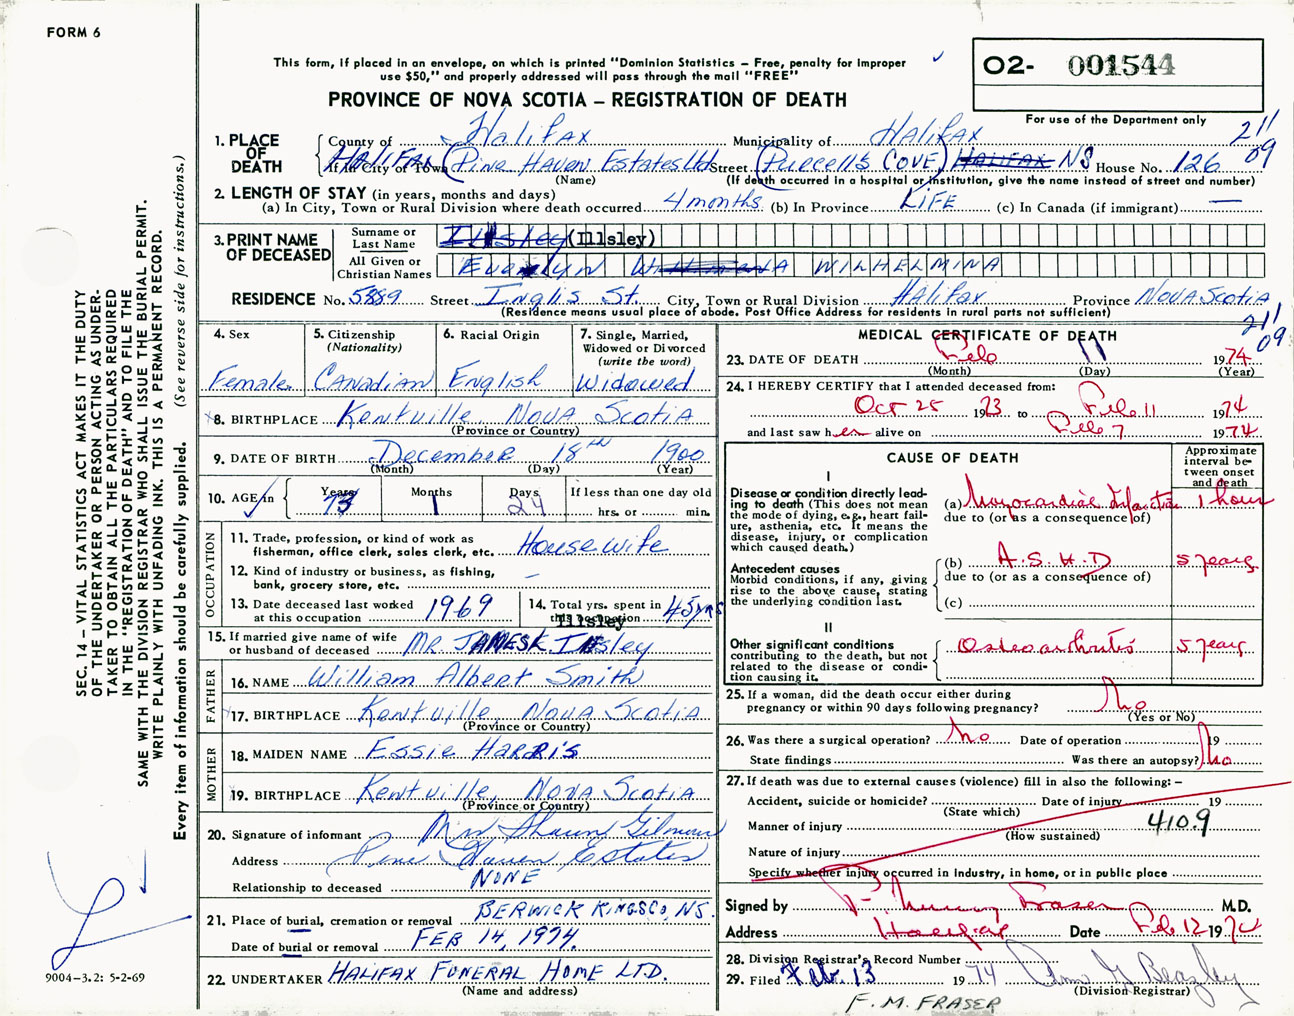 FORM 6
This form, if placed in an envelope, on which is printed "Dominion Statistics – Free, penalty for improper
use $50," and properly addressed will pass through the mail "FREE"
O2- 001544
For use of the Department only
PROVINCE OF NOVA SCOTIA – REGISTRATION OF DEATH
211
09
1. PLACE OF DEATH
County of Halifax Municipality of Halifax
Halifax If in City or Town (Pine Haven Estates Ltd Street (Purcell's Cove) Halifax NS House No. 126
(Name) (If death occurred in a hospital or institution, give the name instead of street and number)
2. LENGTH OF STAY (in years, months and days)
(a) In City, Town or Rural Division where death occurred 4 months (b) In Province LIFE (c) In Canada (if immigrant) —
3. PRINT NAME OF DECEASED
Surname or Last Name (Illsley)
All Given or Christian Names Evenlyn WILHELMINA
RESIDENCE No. 5889 Street Inglis St. City, Town or Rural Division Halifax Province Nova Scotia
(Residence means usual place of abode. Post Office Address for residents in rural parts not sufficient)
211
09
4. Sex Female
5. Citizenship (Nationality) Canadian
6. Racial Origin English
7. Single, Married, Widowed or Divorced (write the word) Widowed
8. BIRTHPLACE Kentville Nova Scotia
(Province or Country)
9. DATE OF BIRTH December 18th 1900
(Month) (Day) (Year)
10. AGE in Years 73 Months 1 Days 24 If less than one day old
hrs. or min.
OCCUPATION
11. Trade, profession, or kind of work as
fisherman, office clerk, sales clerk, etc. Housewife
12. Kind of industry or business, as fishing,
bank, grocery store, etc. –
13. Date deceased last worked
at this occupation 1969
14. Total yrs. spent in
this occupation 45 yrs
Illsley
15. If married give name of wife
or husband of deceased Mr. James K Illsley
FATHER
16. NAME William Albert Smith
17. BIRTHPLACE Kentville, Nova Scotia
(Province or Country)
MOTHER
18. MAIDEN NAME Essie Harris
19. BIRTHPLACE Kentville, Nova Scotia
(Province or Country)
20. Signature of informant Mrs Shaun Gilmour
Address Pine Haven Estates
Relationship to deceased NONE
21. Place of burial, cremation or removal BERWICK KINGS CO. NS.
Date of burial or removal FEB 14, 1974.
22. UNDERTAKER HALIFAX FUNERAL HOME LTD.
(Name and address)
MEDICAL CERTIFICATE OF DEATH
23. DATE OF DEATH Feb 11 1974
(Month) (Day) (Year)
24. I HEREBY CERTIFY that I attended deceased from:
Oct 25 1973 to Feb 11 1974
and last saw her alive on Feb 7 1974
CAUSE OF DEATH
Approximate interval between onset and death
I
Disease or condition directly leading
to death (This does not mean
the mode of dying, e.g., heart failure,
asthenia, etc. It means the
disease, injury, or complication
which caused death.)
(a) Myocardial Infarction 1 hour
due to (or as a consequence of)
Antecedent causes
Morbid conditions, if any, giving
rise to the above cause, stating
the underlying condition last.
(b) A.S.H.D 5 years
due to (or as a consequence of)
(c)
II
Other significant conditions
contributing to the death, but not
related to the disease or condition
causing it.
Osteoarthritis 5 years
25. If a woman, did the death occur either during
pregnancy or within 90 days following pregnancy? No
(Yes or No)
26. Was there a surgical operation? No Date of operation 19
State findings Was there an autopsy? No
27. If death was due to external causes (violence) fill in also the following: –
Accident, suicide or homicide? Date of injury 19
(State which)
Manner of injury 4109
(How sustained)
Nature of injury
Specify whether injury occurred in industry, in home, or in public place
Signed by F. Murray Fraser M.D.
Address Halifax Date Feb 12 1974
28. Division Registrar's Record Number
29. Filed Feb. 13 1974 Beazley
(Division Registrar)
F. M. FRASER
SEC. 14 – VITAL STATISTICS ACT MAKES IT THE DUTY
OF THE UNDERTAKER OR PERSON ACTING AS UNDERTAKER
TO OBTAIN ALL THE PARTICULARS REQUIRED
IN THE "REGISTRATION OF DEATH" AND TO FILE THE
SAME WITH THE DIVISION REGISTRAR WHO SHALL ISSUE THE BURIAL PERMIT.
WRITE PLAINLY WITH UNFADING INK. THIS IS A PERMANENT RECORD.
Every item of information should be carefully supplied. (See reverse side for instructions.)
9004-3.2: 5-2-69